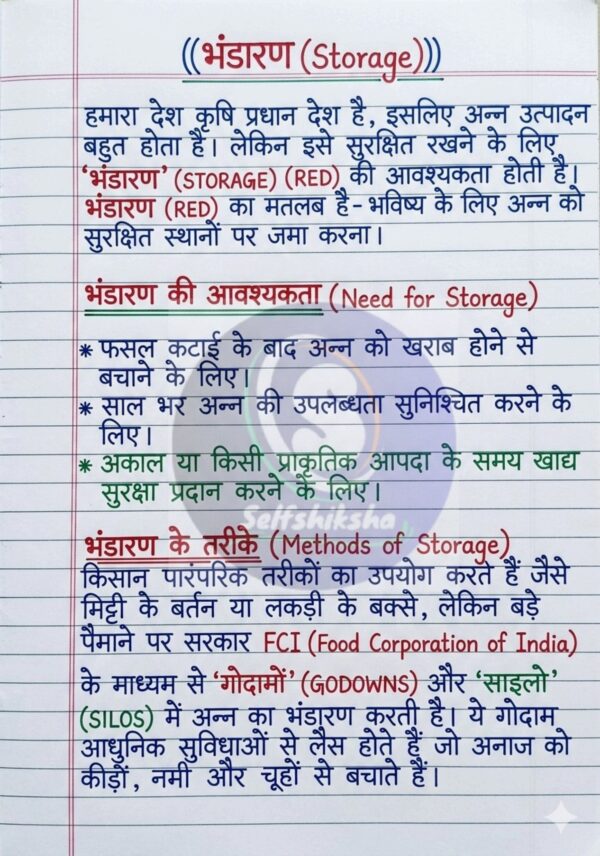 ((भंडारण (Storage)))
हमारा देश कृषि प्रधान देश है, इसलिए अन्न उत्पादन
बहुत होता है। लेकिन इसे सुरक्षित रखने के लिए
‘भंडारण’ (STORAGE) (RED) की आवश्यकता होती है।
भंडारण (RED) का मतलब है - भविष्य के लिए अन्न को
सुरक्षित स्थानों पर जमा करना।
भंडारण की आवश्यकता (Need for Storage)
* फसल कटाई के बाद अन्न को खराब होने से
बचाने के लिए।
* साल भर अन्न की उपलब्धता सुनिश्चित करने के
लिए।
* अकाल या किसी प्राकृतिक आपदा के समय खाद्य
सुरक्षा प्रदान करने के लिए।
Selfshiksha
भंडारण के तरीके (Methods of Storage)
किसान पारंपरिक तरीकों का उपयोग करते हैं जैसे
मिट्टी के बर्तन या लकड़ी के बक्से, लेकिन बड़े
पैमाने पर सरकार FCI (Food Corporation of India)
के माध्यम से ‘गोदामों’ (GODOWNS) और ‘साइलो’
(SILOS) में अन्न का भंडारण करती है। ये गोदाम
आधुनिक सुविधाओं से लैस होते हैं जो अनाज को
कीड़ों, नमी और चूहों से बचाते हैं।